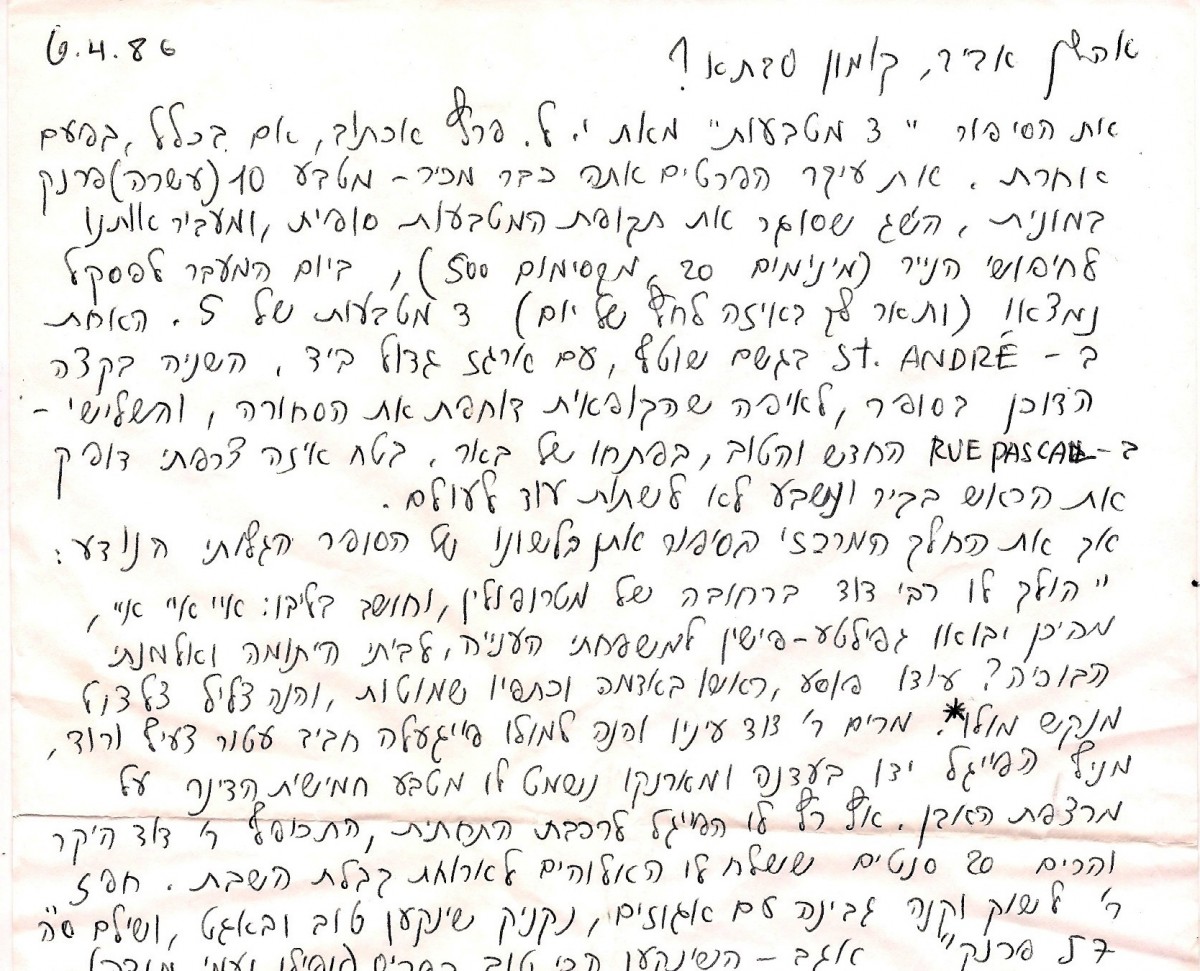 6.4.86
אהלן אביר, קומון סבתא?
את הסיפור "3 מטבעות" מאת י. ל. פרץ אכתוב, אם בכלל, בפעם
אחרת. את עיקר הפרטים אתה כבר מכיר – מטבע 10 (עשרה) פרנק
במונית, השג שסוגר את תקופת המטבעות סופית, ומעביר אותנו
לחיפושי הנייר (מינימום 20, מקסימום 500), ביום המעבר לפסקל
נמצאו (ותאר לך באיזה לחץ של יום) 3 מטבעות של 5. האחת
ב – St. ANDRÉ בגשם שוטף, עם ארגז גדול ביד, השניה בקצה
הדוכן בסופר, לאיפה שהקופאית דוחפת את הסחורה, והשלישי –
ב – RUE PASCAL החדש והטוב, בפתחו של באר. בטח איזה צרפתי דופק
את הראש בקיר ונשבע לא לשתות עוד לעולם.
אך את החלק המרכזי בסיפור אתן בלשונו של הסופר הגלותי הנודע:
"הולך לו רבי דוד ברחובה של מטרופולין, וחושב בליבו: אוי אוי אוי,
מהיכן יבואו געפילטע-פישין למשפחתי הענייה, לביתי היתומה ואלמנתי
הבוכיה? עודו פוסע, ראשו באדמה וכתפיו שמוטות, והנה צליל צלצול
מנקש מולו*. מרים ר' דוד עיניו והנה למולו פייגעלה חביב עטור צעיף ורוד,
מניף הפייגל ידו בעדנה ומארנקו נשמט לו מטבע חמישית הדינר על
מרצפת האבן. אץ רץ לו הפייגל לרכבת התחתית, התכופף ר' דוד היקר
והרים 20 סנטים ששלח לו האלוהים לארוחת קבלת השבת. חפז
ר' לשוק וקנה גבינה עם אגוזים, נקניק שינקען טוב ובאגט, ושילם סה"כ
57 פרנק" אגב – השינקען הכי טוב